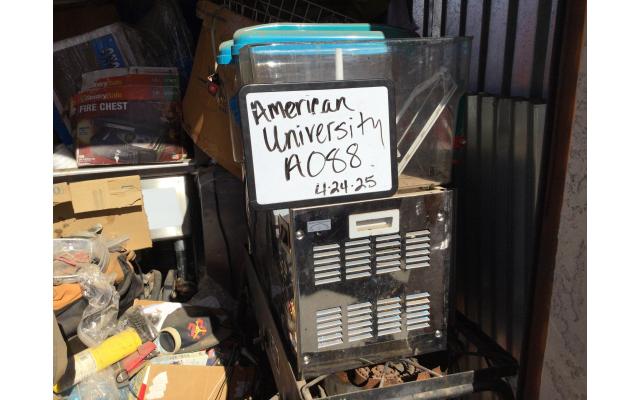 American
University
A088
4-24-25
SentrySafe
FIRE CHEST